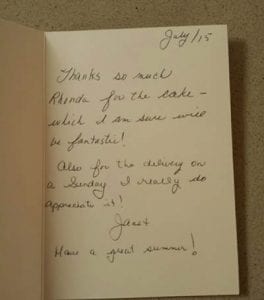 July/15
Thanks so much
Rhonda for the cake -
which I am sure will
be fantastic!
Also for the delivery on
a Sunday I really do
appreciate it!
Janet
Have a great summer!